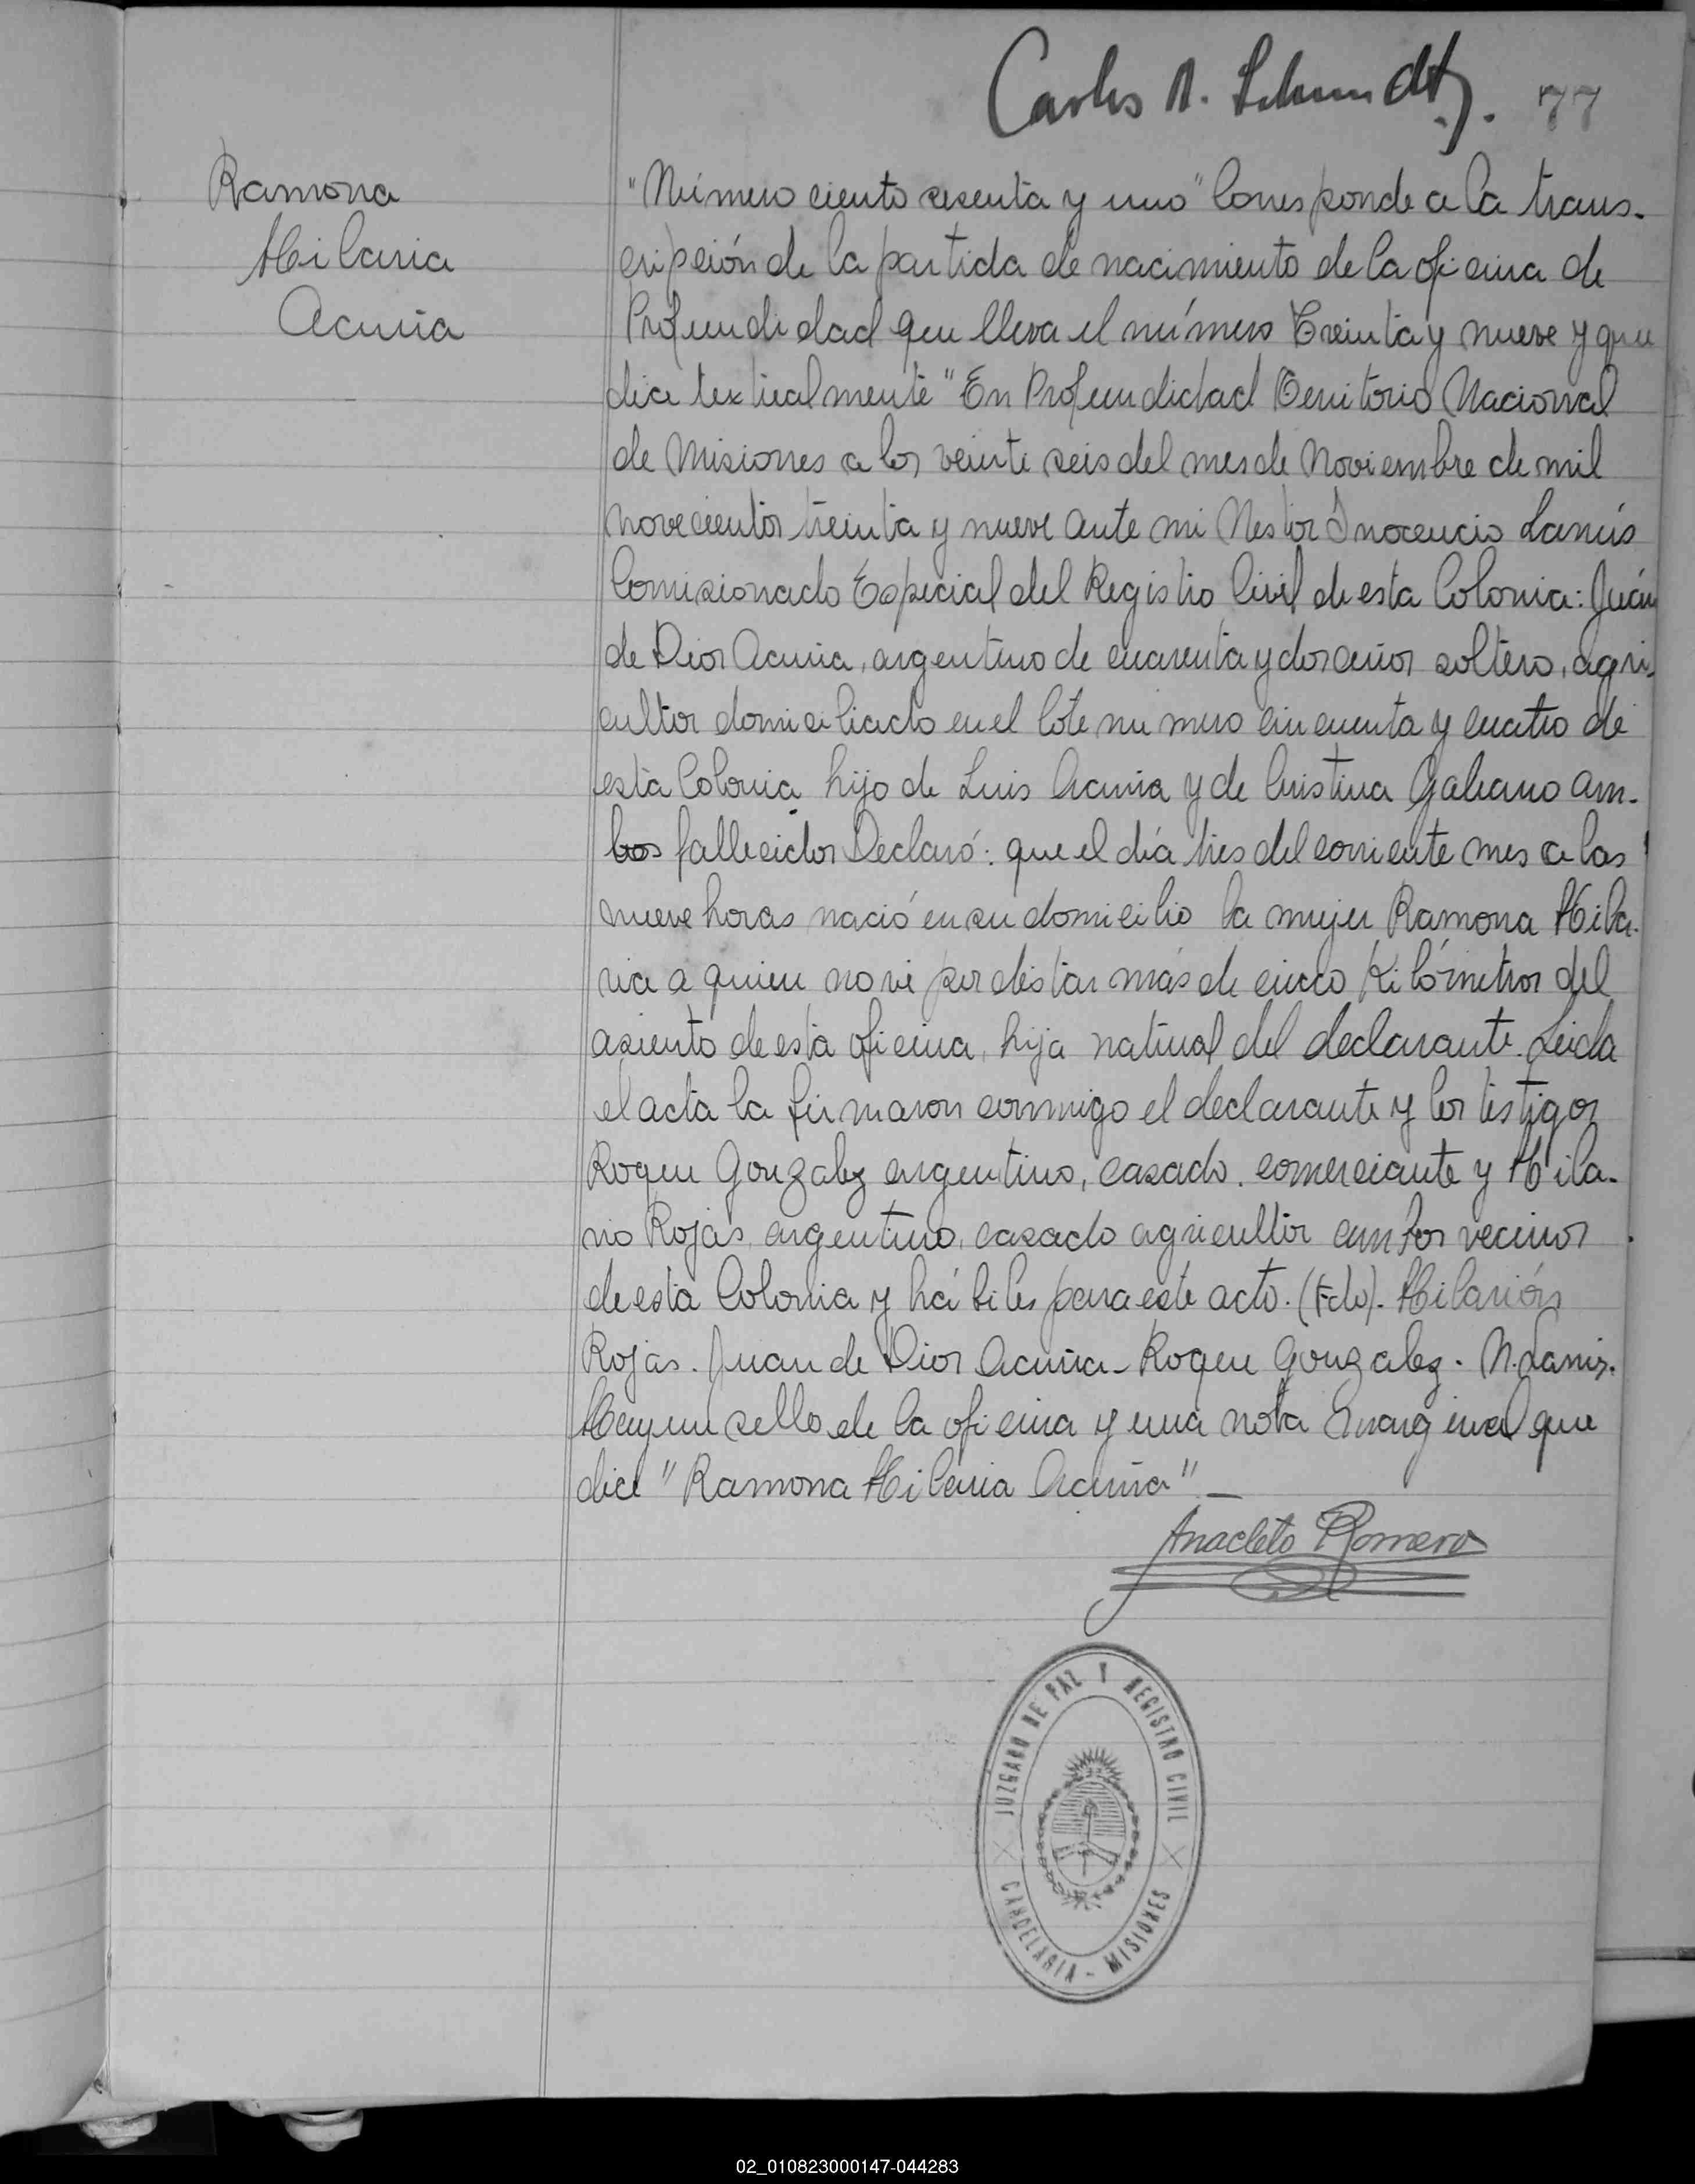 Carlos A. Schmidt J. 77
Ramona
Hilaria
Acuña
"Número ciento sesenta y uno" Corresponde a la trans-
cripción de la partida de nacimiento de la oficina de
Profundidad que lleva el número Treinta y nueve y que
dice textualmente "En Profundidad Territorio Nacional
de Misiones a los veinte seis del mes de Noviembre de mil
novecientos treinta y nueve ante mi Nestor Inocencio Lanús
Comisionado Especial del Registro Civil de esta Colonia: Juán
de Dios Acuña, argentino de cuarenta y dos años soltero, agri-
cultor domiciliado en el lote numero cincuenta y cuatro de
esta Colonia hijo de Luis Acuña y de Cristina Galeano am-
bos fallecidos Declaró: que el día tres del corriente mes a las
nueve horas nació en su domicilio la mujer Ramona Hila-
ria a quien no vi por distar más de cinco Kilómetros del
asiento de esta oficina, hija natural del declarante. Leida
el acta la firmaron conmigo el declarante y los testigos
Roque Gonzalez argentino, casado, comerciante y Hila-
rio Rojas, argentino, casado agricultor ambos vecinos
de esta Colonia y hábiles para este acto. (Fdo). Hilarión
Rojas. Juan de Dios Acuña - Roque Gonzalez. N. Lanus.
Hay un sello de la oficina y una nota marginal que
dice "Ramona Hilaria Acuña" —
Anacleto Romero
JUZGADO DE PAZ Y REGISTRO CIVIL
CANDELARIA - MISIONES
02_010823000147-044283